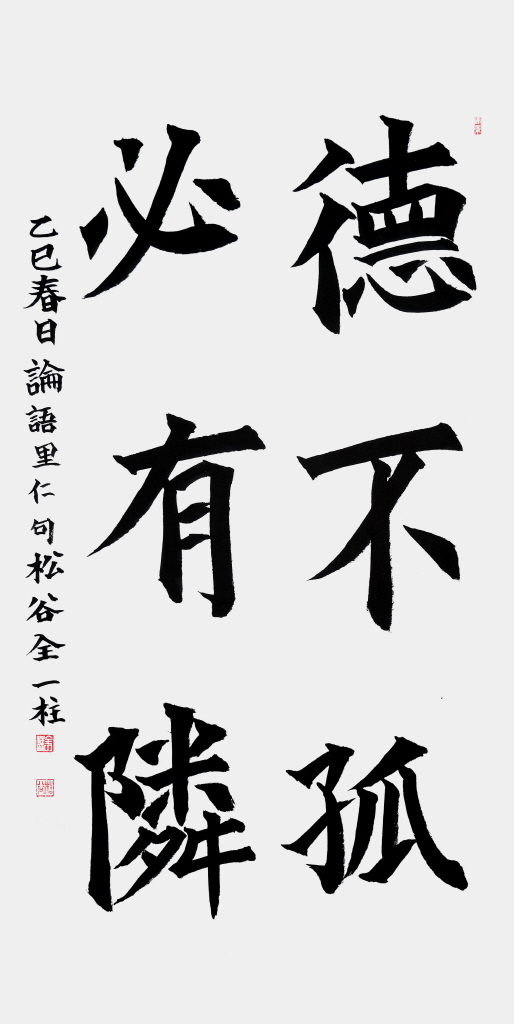 德不孤
必有隣
乙巳春日論語里仁句松谷全一柱